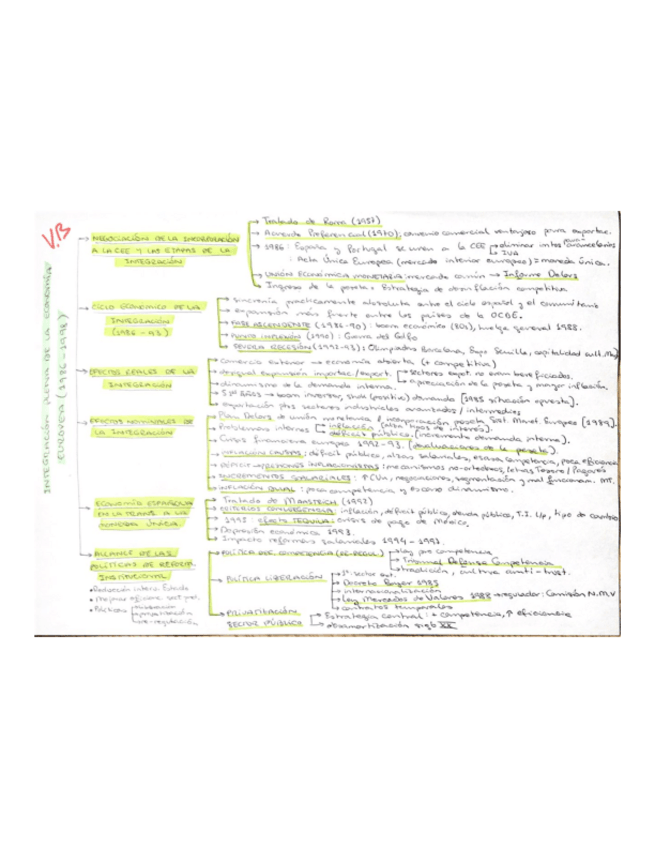 V.B
INTEGRACIÓN PLENA DE LA ECONOMÍA
EUROPEA (1986-1998)
NEGOCIACIÓN DE LA INTEGRACIÓN
A LA CEE Y LAS ETAPAS DE LA
INTEGRACIÓN
Tratado de Roma (1957)
Acuerdo Preferencial (1970); convenio comercial ventajoso para exportac.
1986: España y Portugal se unen a la CEE eliminar arancelarios
IVA
Acta Única Europea (mercado interior europeo) = moneda única.
UNIÓN ECONÓMICA MONETARIA: mercado común → Informe Delors
Ingreso de la peseta: Estrategia de desinflación competitiva
CICLO ECONÓMICO DE LA
INTEGRACIÓN
(1986-93)
Sincronía prácticamente absoluta entre el ciclo español y el comunitario
expansión más fuerte entre los países de la OCDE.
FASE ASCENDENTE (1986-90): boom económico (80s), huelga general 1988.
PUNTO INFLEXIÓN (1990): Guerra del Golfo
SEVERA RECESIÓN (1991-93): Olimpiadas Barcelona, Expo Sevilla, capitalidad cult. Ma
EFECTOS REALES DE LA
INTEGRACIÓN
comercio exterior → economía abierta (+ competitiva)
desigual expansión importac/export. sectores export. no eran beneficiados.
apreciación de la peseta y mayor inflación.
dinamismo de la demanda interna.
5 1os AÑOS → boom inversor, shock (positivo) demanda [1985 situación opuesta].
exportación pts sectores industriales avanzados / intermedios
EFECTOS NOMINALES DE
LA INTEGRACIÓN
Plan Delors de unión monetaria e incorporación peseta Sist. Monet. Europeo [1989].
Problemas internos inflación (altos tipos de interés).
déficit público. (incremento demanda interna).
Crisis financiera europea 1992-93. (devaluaciones de la peseta).
INFLACIÓN CAUSAS: déficit público, alzas salariales, escasa competencia, poca eficiencia
DÉFICIT → PRESIONES INFLACIONISTAS: mecanismos no-ortodoxos, letras Tesoro / Pagarés
INCREMENTOS SALARIALES: negociaciones, segmentación y mal funcionam.
INFLACIÓN DUAL: poca competencia y escaso dinamismo.
ECONOMÍA ESPAÑOLA
EN LA TRANS. A LA
MONEDA ÚNICA.
Tratado de MAASTRICH (1992)
CRITERIOS CONVERGENCIA: inflación, déficit público, deuda pública, T.I. L/p, tipo de cambio
1995: EFECTO TEQUILA: crisis de pago de México.
Depresión económica 1993.
Impacto reformas salariales 1994 - 1997.
ALCANCE DE LAS
POLÍTICAS DE REFORMA
INSTITUCIONAL
Reducción interv. Estado
Mejorar eficienc. sect. pot.
Políticas liberación
privatización
re-regulación
POLÍTICA DEF. COMPETENCIA (RE-REGUL.) Ley pro competencia
Tribunal Defensa Competencia
tradición, cultura anti-trust.
POLÍTICA LIBERACIÓN
Decreto Boyer 1985
internacionalización
Ley Mercados de Valores 1988 → regulador: Comisión N.M.V
contratos temporales
PRIVATIZACIÓN
SECTOR PÚBLICO
Estrategia central: + competencia, ↑ eficiencia
desamortización siglo XX